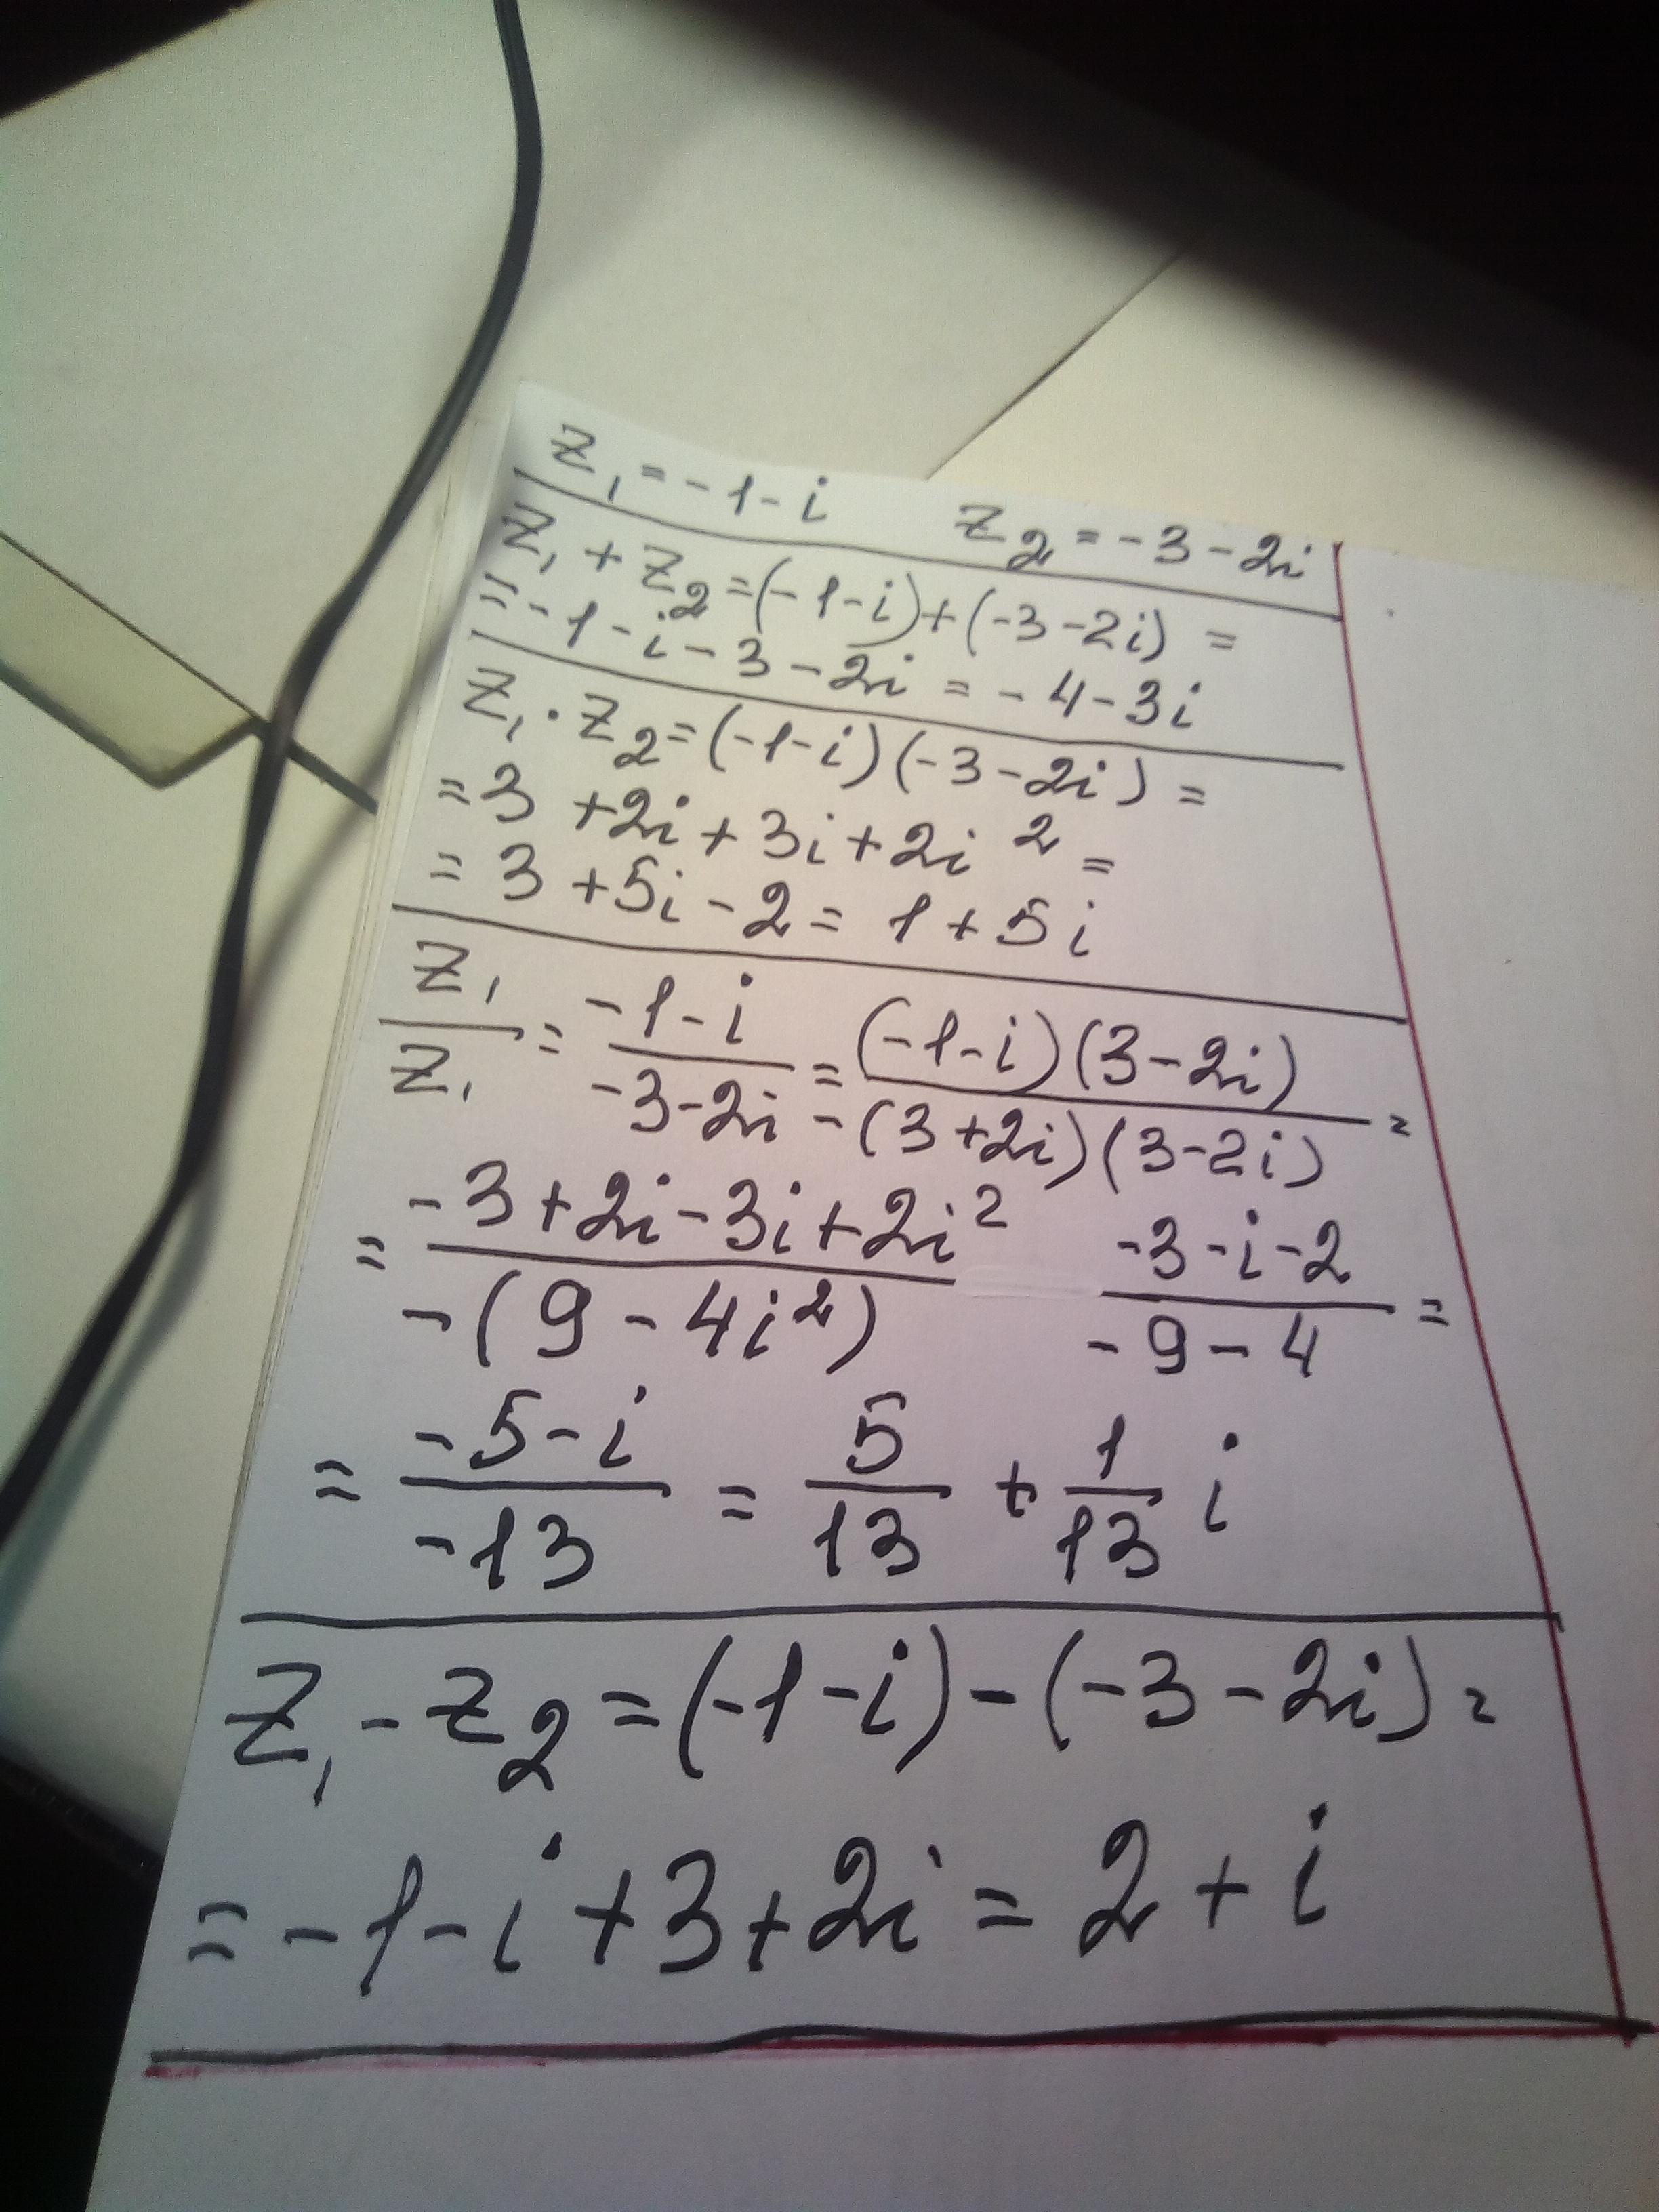 Z₁ = -1 - i    Z₂ = -3 - 2i
Z₁ + Z₂ = (-1 - i) + (-3 - 2i) =
= -1 - i - 3 - 2i = -4 - 3i
Z₁ · Z₂ = (-1 - i)(-3 - 2i) =
= 3 + 2i + 3i + 2i² =
= 3 + 5i - 2 = 1 + 5i
Z₁/Z₁ = (-1 - i)/(-3 - 2i) = (-1 - i)(3 - 2i)/-(3 + 2i)(3 - 2i) =
= (-3 + 2i - 3i + 2i²)/-(9 - 4i²)    (-3 - i - 2)/(-9 - 4) =
= (-5 - i)/(-13) = 5/13 + 1/13 i
Z₁ - Z₂ = (-1 - i) - (-3 - 2i) =
= -1 - i + 3 + 2i = 2 + i